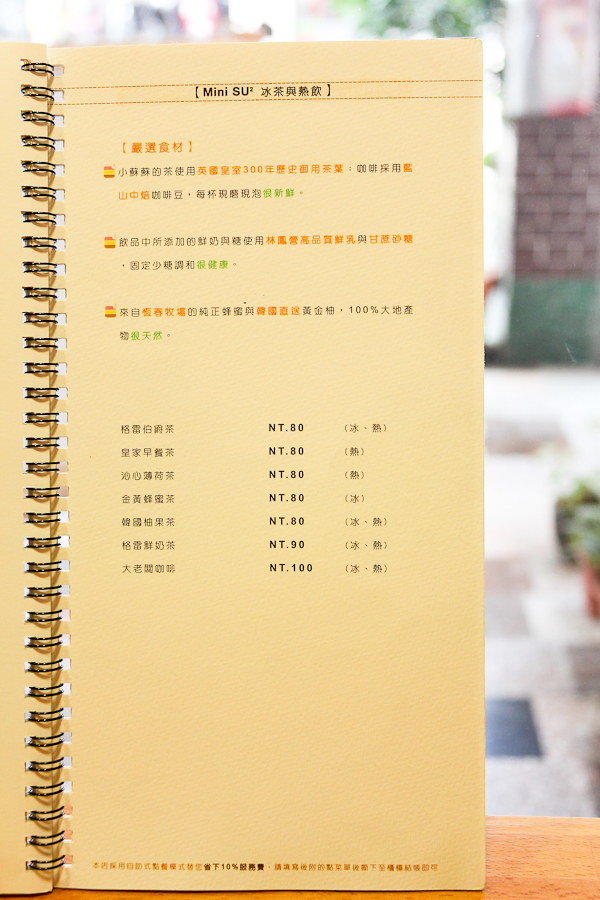 【Mini SU² 冰茶與熱飲】
【嚴選食材】
小蘇蘇的茶使用英國皇室300年歷史御用茶葉；咖啡採用藍
山中焙咖啡豆，每杯現磨現泡很新鮮。
飲品中所添加的鮮奶與糖使用林鳳營高品質鮮乳與甘蔗砂糖
，固定少糖調和很健康。
來自恆春牧場的純正蜂蜜與韓國直送黃金柚，100%大地產
物很天然。
格雷伯爵茶 NT.80 （冰、熱）
皇家早餐茶 NT.80 （熱）
沁心薄荷茶 NT.80 （熱）
金黃蜂蜜茶 NT.80 （冰）
韓國柚果茶 NT.80 （冰、熱）
格雷鮮奶茶 NT.90 （冰、熱）
大老闆咖啡 NT.100 （冰、熱）
本店採用自助式點餐模式替您省下10%服務費，請填寫後附的點菜單後撕下至櫃檯結帳即可